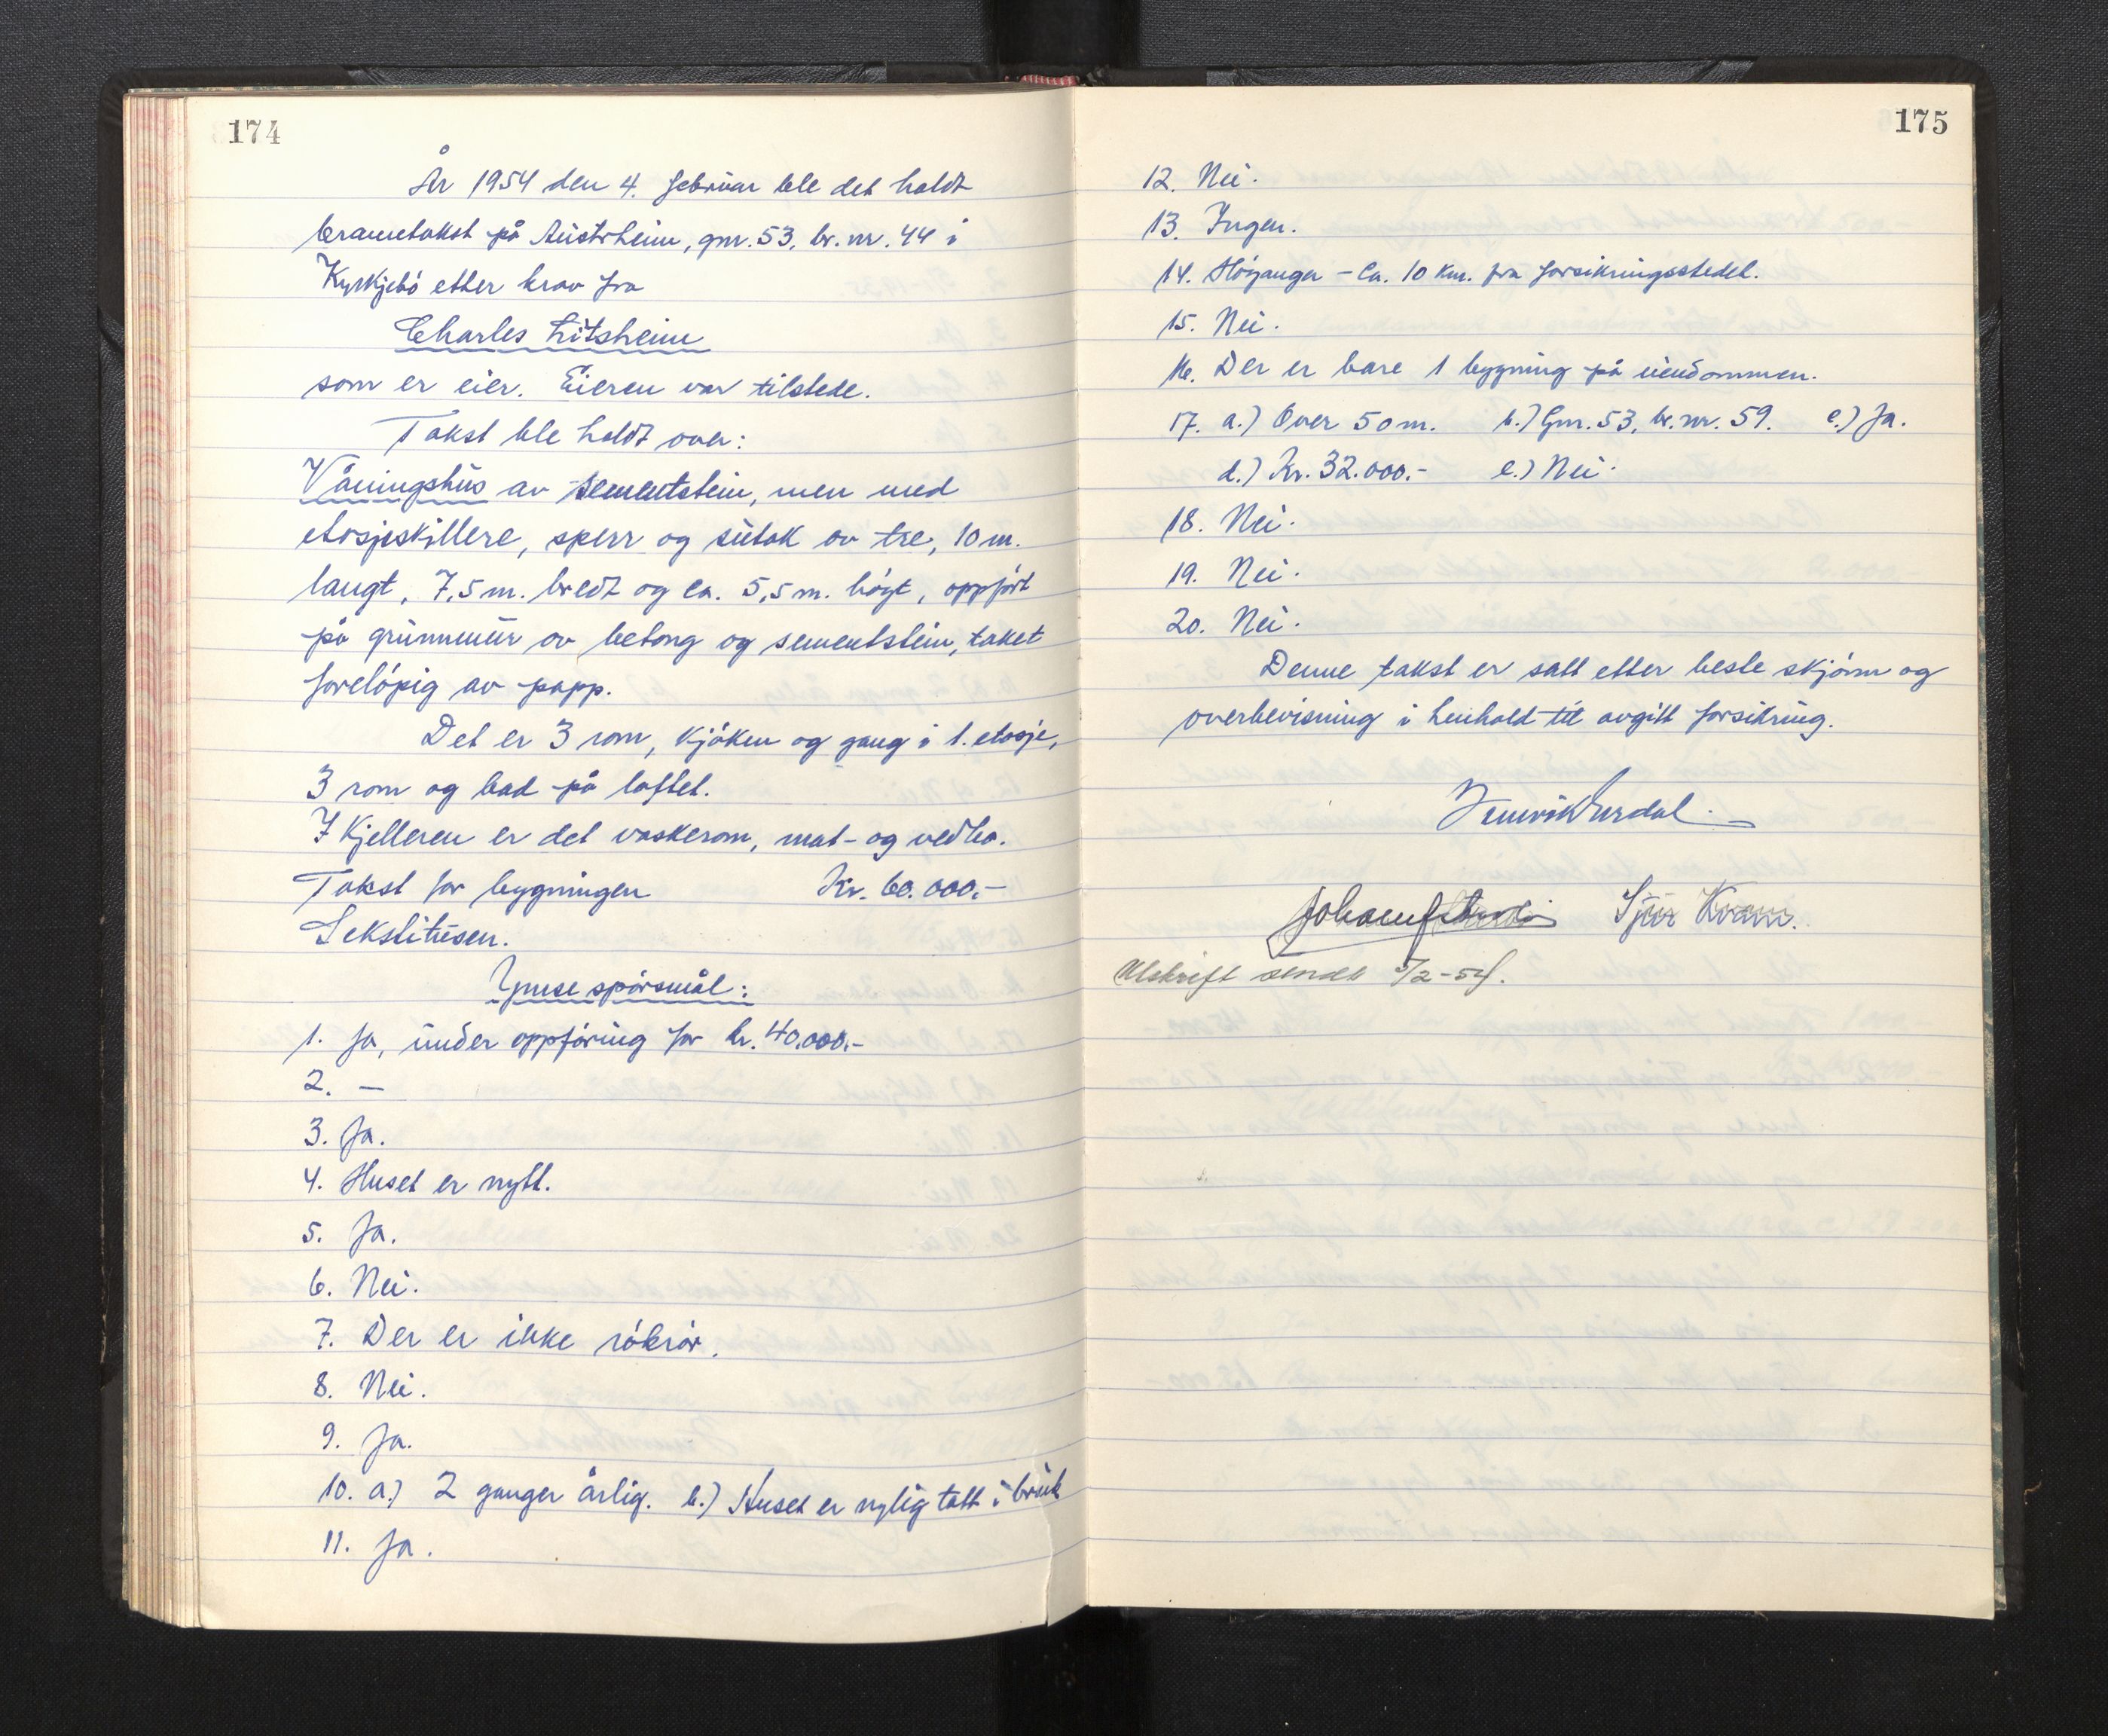 174
År 1954 den 4. februar ble det holdt
branntakst på Austrheim, gnr. 53, br. nr. 44 i
Kyrkjebö etter krav fra
Charles
som er eier. Eieren var tilstede.
Takst ble holdt over:
Våningshus av sementstein, men med
etasjeskillere, sperr og sutak av tre, 10 m.
langt, 7,5 m. bredt og ca. 5,5 m. högt, oppfört
på grunnmur av betong og sementstein, taket
forelöpig av papp.
Det er 3 rom, kjöken og gang i 1. etasje,
3 rom og bad på loftet.
I kjelleren er det vaskerom, mat- og vedbo.
Takst for bygningen Kr. 60.000.-
Sekstitusen.
Ymse spörsmål:
1. Ja, under oppföring for kr. 40.000.-
2. —
3. Ja.
4. Huset er nytt.
5. Ja.
6. Nei.
7. Der er ikke rökrör.
8. Nei.
9. Ja.
10. a.) 2 ganger årlig. b.) Huset er nylig tatt i bruk
11. Ja.
175
12. Nei.
13. Ingen.
14. Höyanger – ca. 10 km. fra forsikringsstedet.
15. Nei.
16. Der er bare 1 bygning på eiendommen.
17. a.) Over 50 m. b.) Gnr. 53, br. nr. 59. c.) Ja.
d.) Kr. 32.000.- e.) Nei.
18. Nei.
19. Nei.
20. Nei.
Denne takst er satt etter beste skjönn og
overbevisning i henhold til avgitt forsikring.
Sjur Kvam.
Utskrift sendt /2-54.